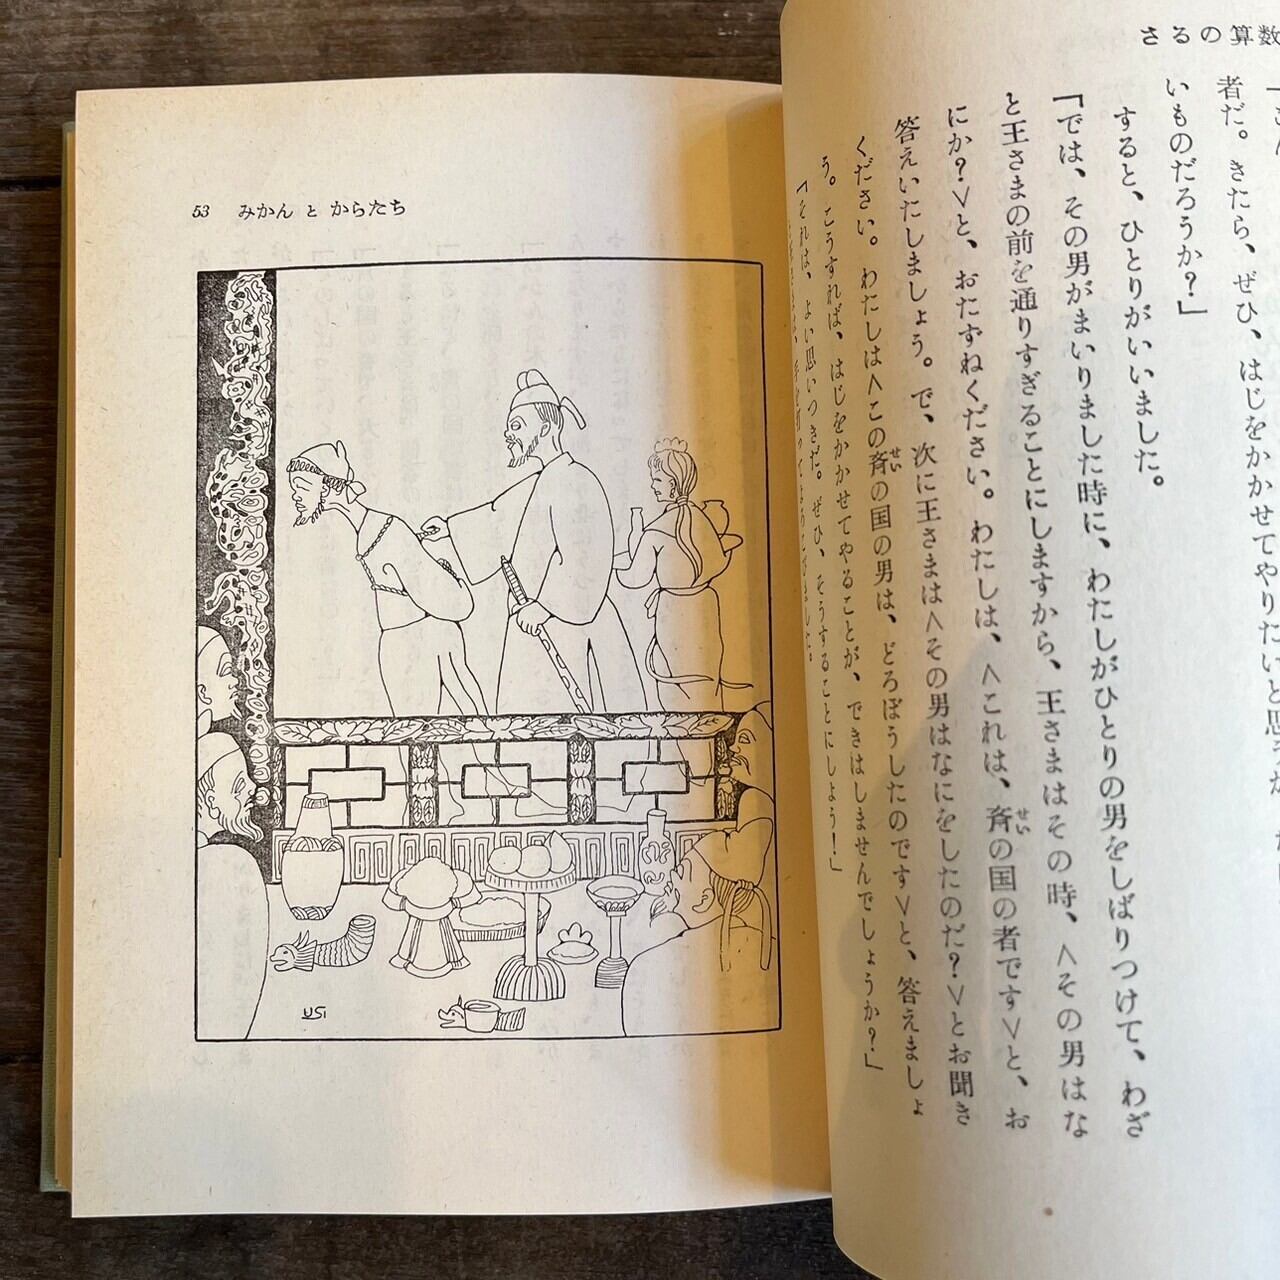 さるの算数
者だ。きたら、ぜひ、はじをかかせてやりたいと思うが、
いものだろうか？」
すると、ひとりがいいました。
「では、その男がまいりました時に、わたしがひとりの男をしばりつけて、わざ
と王さまの前を通りすぎることにしますから、王さまはその時、＜その男はな
にか？＞と、おたずねください。わたしは、＜これは、斉せいの国の者です＞と、お
答えいたしましょう。で、次に王さまは＜その男はなにをしたのだ？＞とお聞き
ください。わたしは＜この斉せいの国の男は、どろぼうしたのです＞と、答えましょ
う。こうすれば、はじをかかせてやることが、できはしませんでしょうか？」
「それは、よい思いつきだ。ぜひ、そうすることにしよう！」
手を打ってよろこびました。
53 みかん と からたち
USi